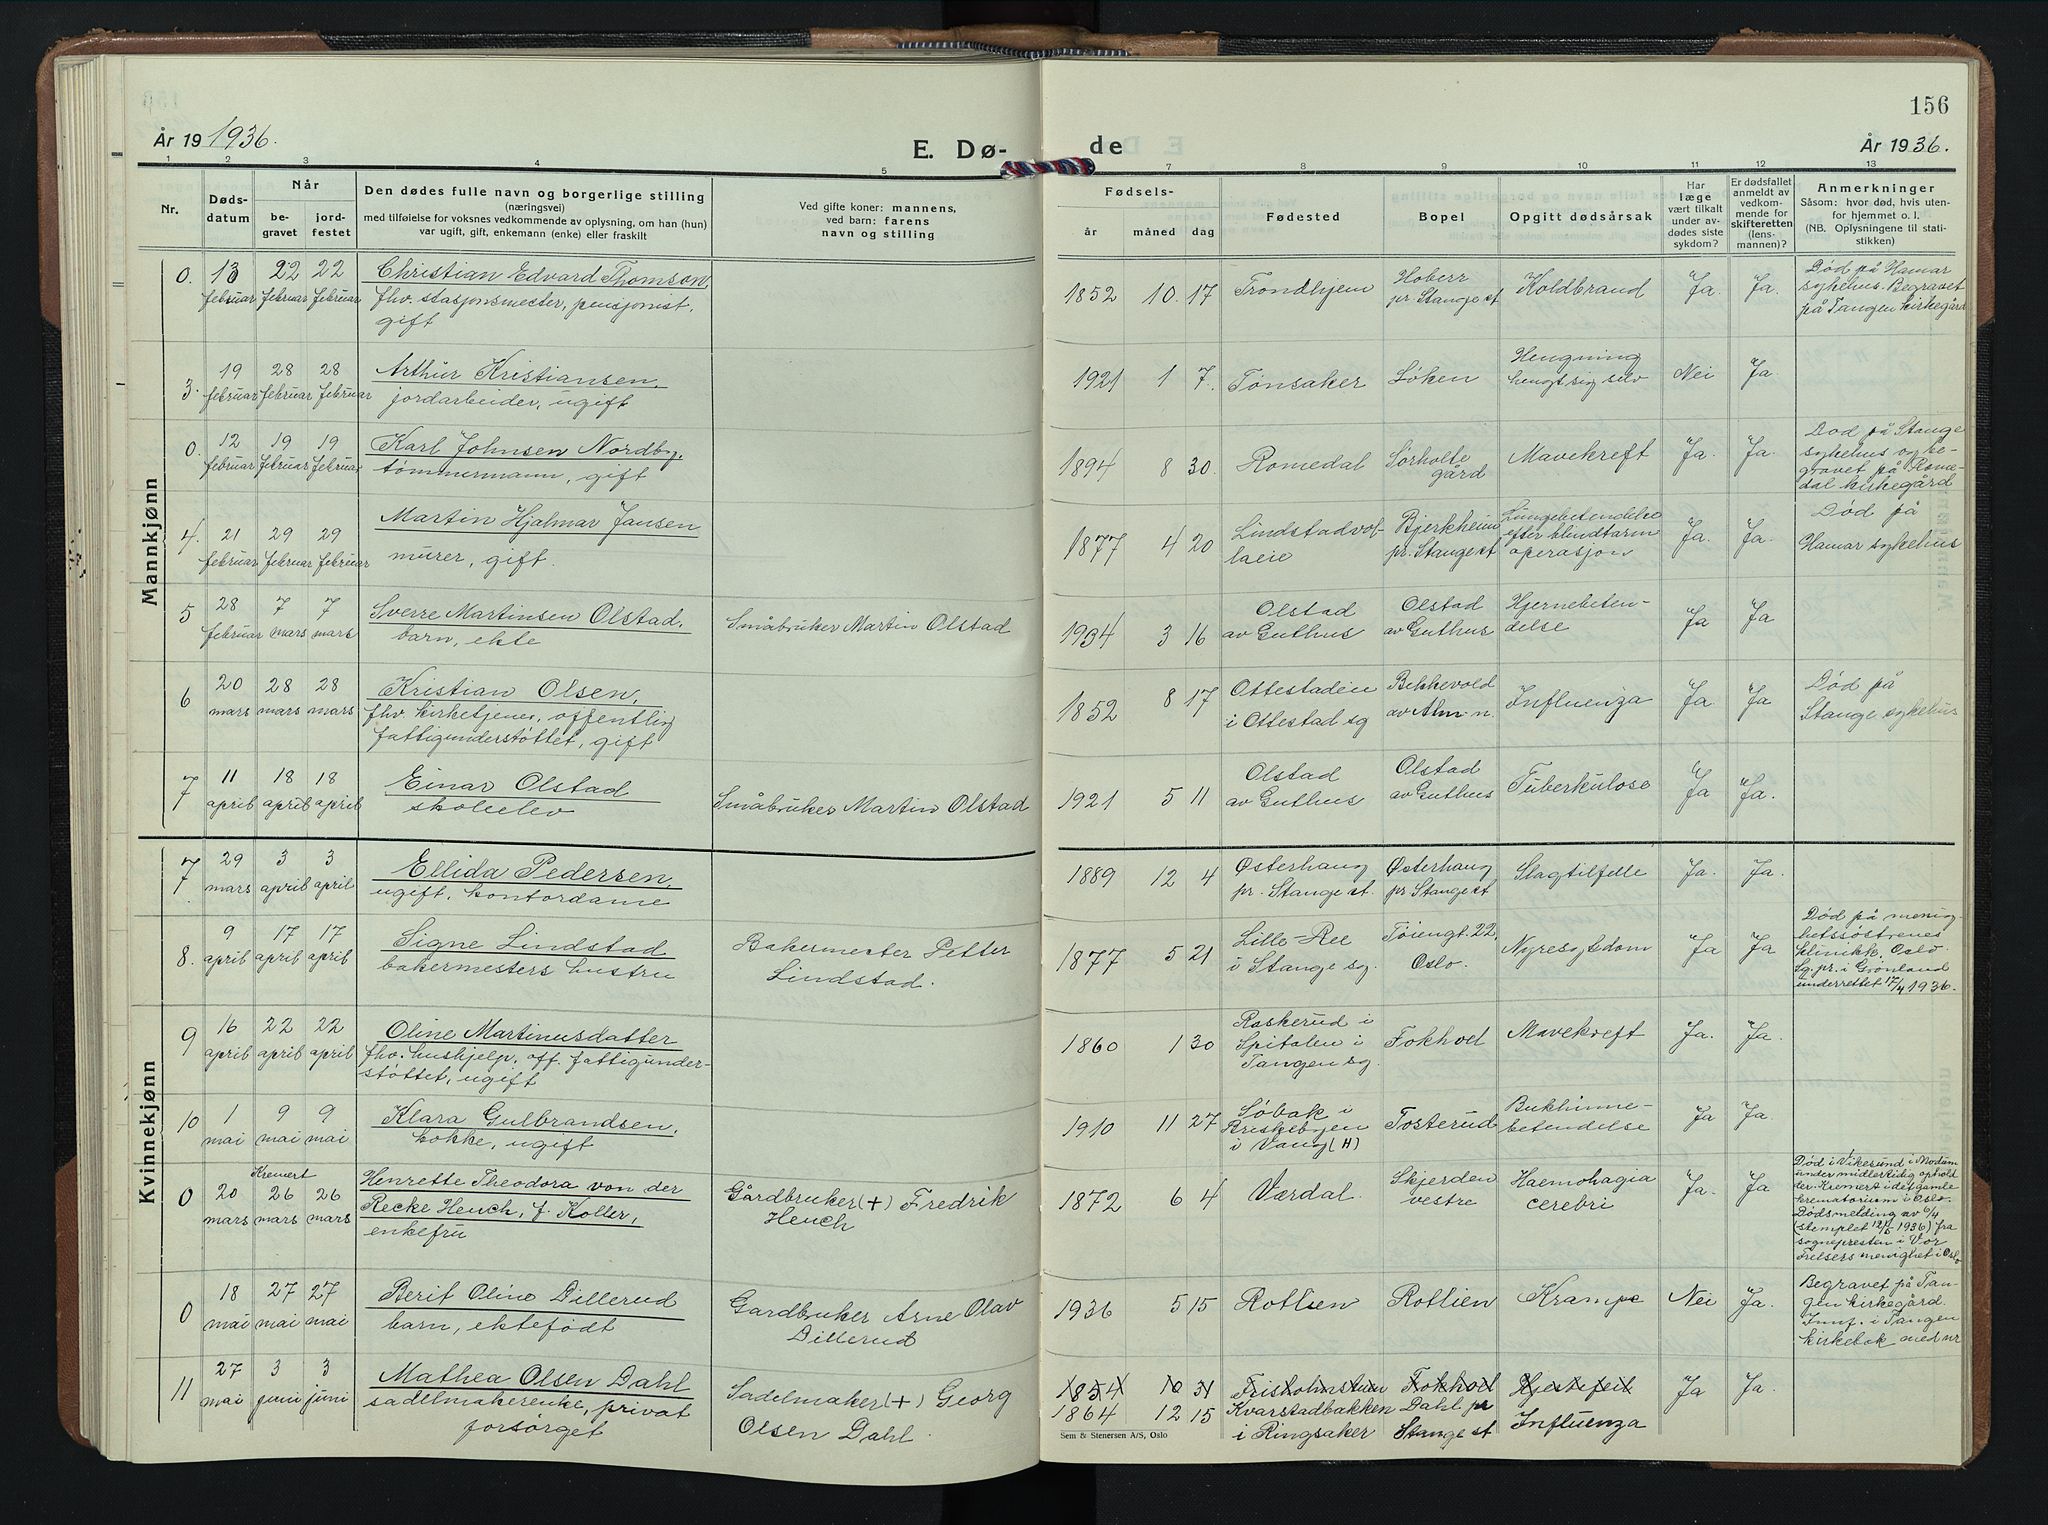 156
År 19 1936.
E. Dø-
de
År 1936.
1 2 3 4 5 7 8 9 10 11 12 13
Nr.
Døds-
datum
Når
be-
gravet
jord-
festet
Den dødes fulle navn og borgerlige stilling
(næringsvei)
med tilføielse for voksnes vedkommende av oplysning, om han (hun)
var ugift, gift, enkemann (enke) eller fraskilt
Ved gifte koner: mannens,
ved barn: farens
navn og stilling
Fødsels-
år måned dag
Fødested
Bopel
Opgitt dødsårsak
Har
læge
vært tilkalt
under av-
dødes siste
sykdom?
Er dødsfallet
anmeldt av
vedkom-
mende for
skifteretten
(lens-
mannen)?
Anmerkninger
Såsom: hvor død, hvis uten-
for hjemmet o. l.
(NB. Oplysningene til stati-
stikken)
Mannkjønn
0. 13 februar 22 februar 22 februar
Christian Edvard Thomson,
fhv. stasjonsmester, pensjonist,
gift
1852 10. 17 Trondhjem
Hoberr
pr. Stange st
Koldbrand Ja. Ja.
Død på Hamar
sykehus. Begravet
på Tangen kirkegård
3. 19 februar 28 februar 28 februar
Arthur Kristiansen,
jordarbeider, ugift
1921 1 7. Tønsaker Løken
Hengning
hengt sig selv
Nei Ja.
0. 12 februar 19 februar 19 februar
Karl Johnsen Nordby,
tømmermann, gift
1894 8 30. Romedal
Sørholte
gård
Mavekreft Ja. Ja.
Død på Stange
sykehus og be-
gravet på Rome-
dal kirkegård
4. 21 februar 29 februar 29 februar
Martin Hjalmar Jansen
murer, gift.
1877 4 20
Lindstadvol-
laeie
Bjerkheim
pr. Stange st
Lungebetendelse
efter blindtarm
operasjon
Ja. Ja.
Død på
Hamar sykehus
5 28 februar 7 mars 7 mars
Sverre Martinsen Olstad,
barn, ekte
Småbruker Martin Olstad
1934 3 16
Olstad
av Guthus
Olstad
av Guthus
Hjernebeten-
delse
Ja Ja
6 20 mars 28 mars 28 mars
Kristian Olsen,
fhv. kirketjener, offentlig
fattigunderstøttet, gift
1852 8 17
Ottestadeie
i Ottestad sg
Bekkevold
av Alm n.
Influenza Ja Ja
Død på
Stange sykehus
7 11 april 18 april 18 april
Einar Olstad
skoleelev
Småbruker Martin Olstad
1921 5 11
Olstad
av Guthus
Olstad
av Guthus
Tuberkulose Ja Ja.
Kvinnekjønn
7 29 mars 3 april 3 april
Ellida Pedersen,
ugift, kontordame
1889 12 4
Østerhaug
pr. Stange st.
Østerhaug
pr Stange st
Slagtilfelle Ja. Ja.
8. 9 april 17 april 17 april
Signe Lindstad
bakermesters hustru
Bakermester Petter
Lindstad.
1877 5 21
Lille-Ree
i Stange sg.
Tøiengt. 22,
Oslo.
Nyresygdom Ja Ja
Død på menig-
hetssøstrenes
klinikk, Oslo.
Sg.pr. i Grønland
underrettet 17/4 1936.
9 16 april 22 april 22 april
Oline Martinusdatter
fhv. hushjelp, off. fattigunder-
støttet, ugift
1860 1 30
Raskerud i
Spitalen i
Tangen sg.
Fokhol Mavekreft Ja. Ja.
10 1 mai 9 mai 9 mai
Klara Gulbrandsen,
kokke, ugift
1910 11 27
Søbak i
Briskebyen
i Vang (H)
Tosterud
Bukhinne-
betendelse
Ja Ja
0 20 mars
Kremert
26 mars 26 mars
Henrette Theodora von der
Recke Heuch, f. Koller,
enkefru
Gårdbruker (+) Fredrik
Heuch
1872 6 4 Værdal.
Skjerden
vestre
Haemohagia
cerebri
Ja. Ja
Død i Vikesund i Modum
under midlertidig ophold
der. Kremert i det gamle
krematorium i Oslo.
Dødsmelding av 6/4
(stemplet 12/5 1936) fra
sognepresten i Vor
Frelsers menighet i Oslo
0 18 mai 27 mai 27 mai
Berit Oline Dillerud
barn, ektefødt
Gårdbruker Arne Olav
Dillerud
1936 5 15 Rotlien Rotlien Krampe Nei Ja.
Begravet på Tan-
gen kirkegård.
Innf. i Tangen
kirkebok med nr
11 27 mai 3 juni 3 juni
Mathea Olsen Dahl
sadelmakerenke, privat
forsørget
Sadelmaker (+) Georg
Olsen Dahl.
1854 10 31 Frisholmstuen Fokhol Hjertefeil Ja Ja.
1864 12 15
Kvarstadbakken
i Ringsaker
Dahl pr
Stange st
Influenza
Sem & Stenersen A/S, Oslo